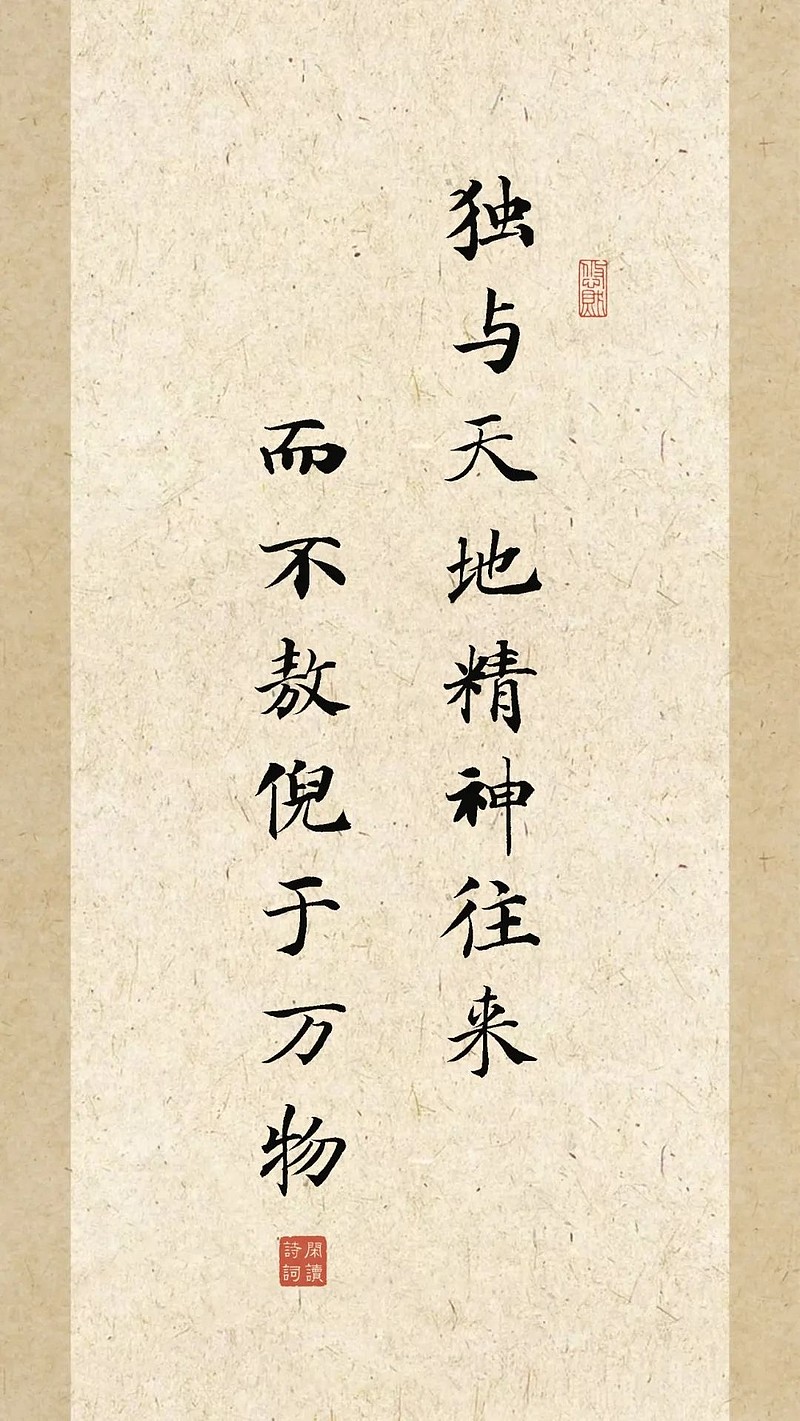 独与天地精神往来
而不敖倪于万物
閑讀
詩詞